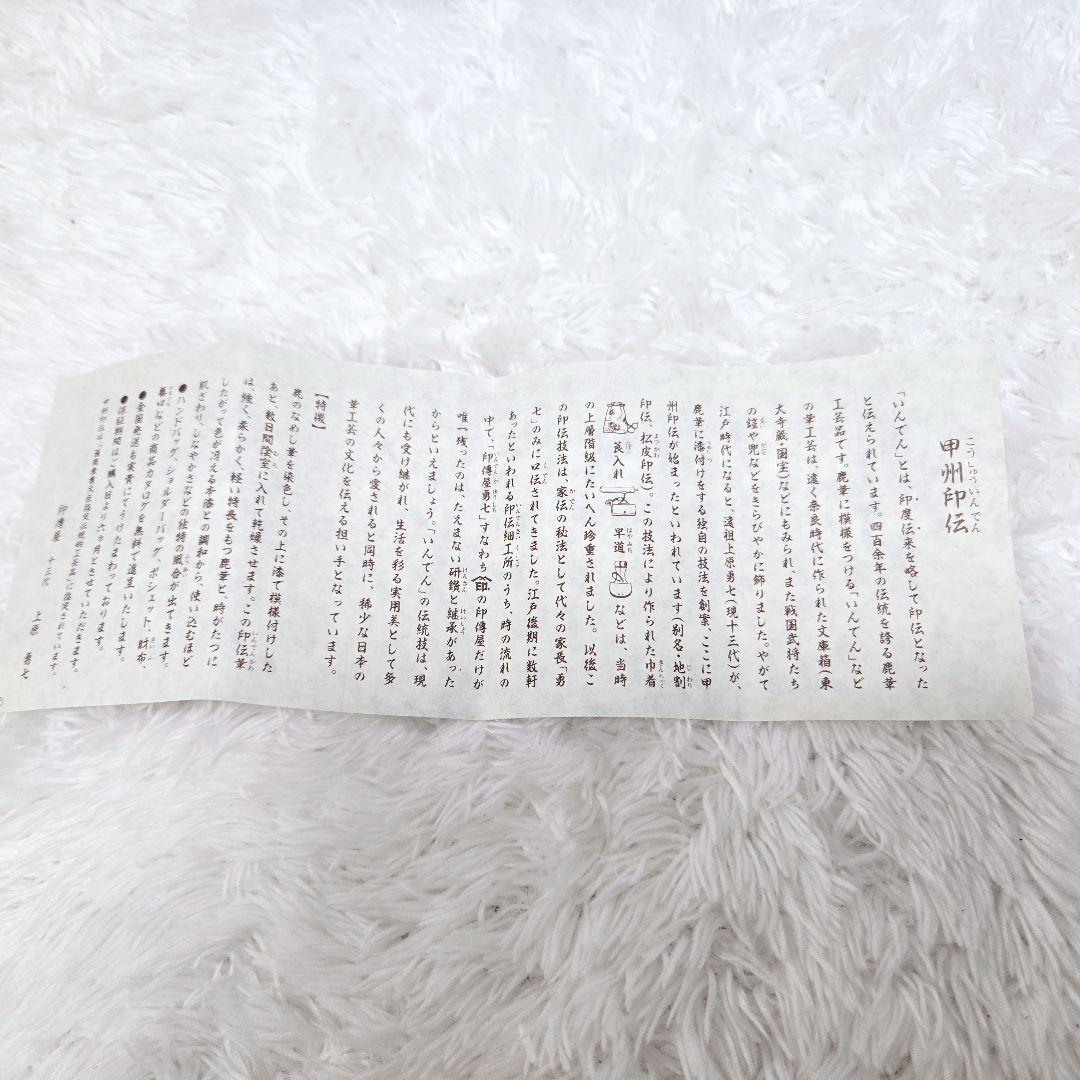 甲州印伝
こうしゅういんでん
「いんでん」とは、印度伝来を略して印伝となった
と伝えられています。四百余年の伝統を誇る鹿革
工芸品です。鹿革に模様をつける「いんでん」など
の革工芸は、遠く奈良時代に作られた文庫箱(東
大寺蔵・国宝)などにもみられ、また戦国武将たち
の鎧や兜などをきらびやかに飾りました。やがて
江戸時代になると、遠祖上原勇七(現十三代)が、
鹿革に漆付けをする独自の技法を創案、ここに甲
州印伝が始まったといわれています(別名・地割
印伝、松皮印伝)。この技法により作られた巾着
莨入れ 早道 などは、当時
の上層階級にたいへん珍重されました。以後こ
の印伝技法は、家伝の秘法として代々の家長「勇
七」のみに口伝されてきました。江戸後期に数軒
あったといわれる印伝細工所のうち、時の流れの
中で、「印傳屋勇七」すなわち 印 の印傳屋だけが
唯一残ったのは、たえまない研鑽と継承があった
からといえましょう。「いんでん」の伝統技は、現
代にも受け継がれ、生活を彩る実用美として多
くの人々から愛されると同時に、稀少な日本の
革工芸の文化を伝える担い手となっています。
【特徴】
鹿のなめし革を染色し、その上に漆で模様付けした
あと、数日間陰室に入れて乾燥させます。この印伝革
は、強く、柔らかく、軽い特長をもつ鹿革と、時がたつに
したがって色が冴える本漆との調和から、使い込むほど
肌ざわり、しなやかさなどの独特の風合が出てきます。
●ハンドバッグ、ショルダーバッグ、ポシェット、財布、
蟇口などの商品カタログを無料で進呈いたします。
●全国発送も責任にてうけたまわっております。
●保証期間はご購入日より六ヵ月とさせていただきます。
甲州印伝は、通産大臣指定伝統的工芸品に指定されています。
印傳屋 十三代
上原 勇七